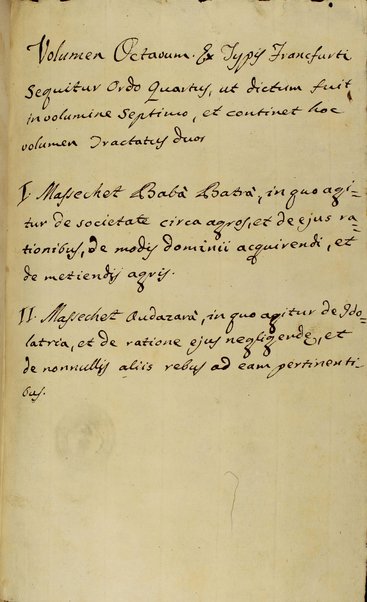 Volumen Octavum. Ex Typis Francfurti
Sequitur Ordo Quartus, ut dictum fuit
in volumine Septimo, et continet hoc
volumen Tractatus duos
I. Massechet Babâ Batrâ, in quo agi=
tur de societate circa agros, et de ejus ra=
tionibus, de modis dominii acquirendi, et
de metiendis agris.
II. Massechet Audazarà, in quo agitur de Ido=
latria, et de ratione ejus negligendę, et
de nonnullis aliis rebus ad eam pertinenti=
bus.